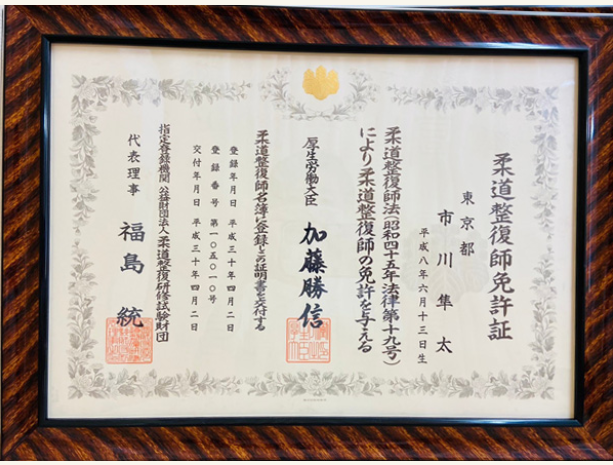 柔道整復師免許証
東京都
市川隼太
平成八年六月十三日生
柔道整復師法(昭和四十五年法律第十九号)
により柔道整復師の免許を与える
厚生労働大臣 加藤勝信
柔道整復師名簿に登録しこの証明書を交付する
登録年月日 平成三十年四月二日
登録番号 第一〇五〇一〇号
交付年月日 平成三十年四月二日
指定登録機関 公益財団法人柔道整復研修試験財団
代表理事 福島統